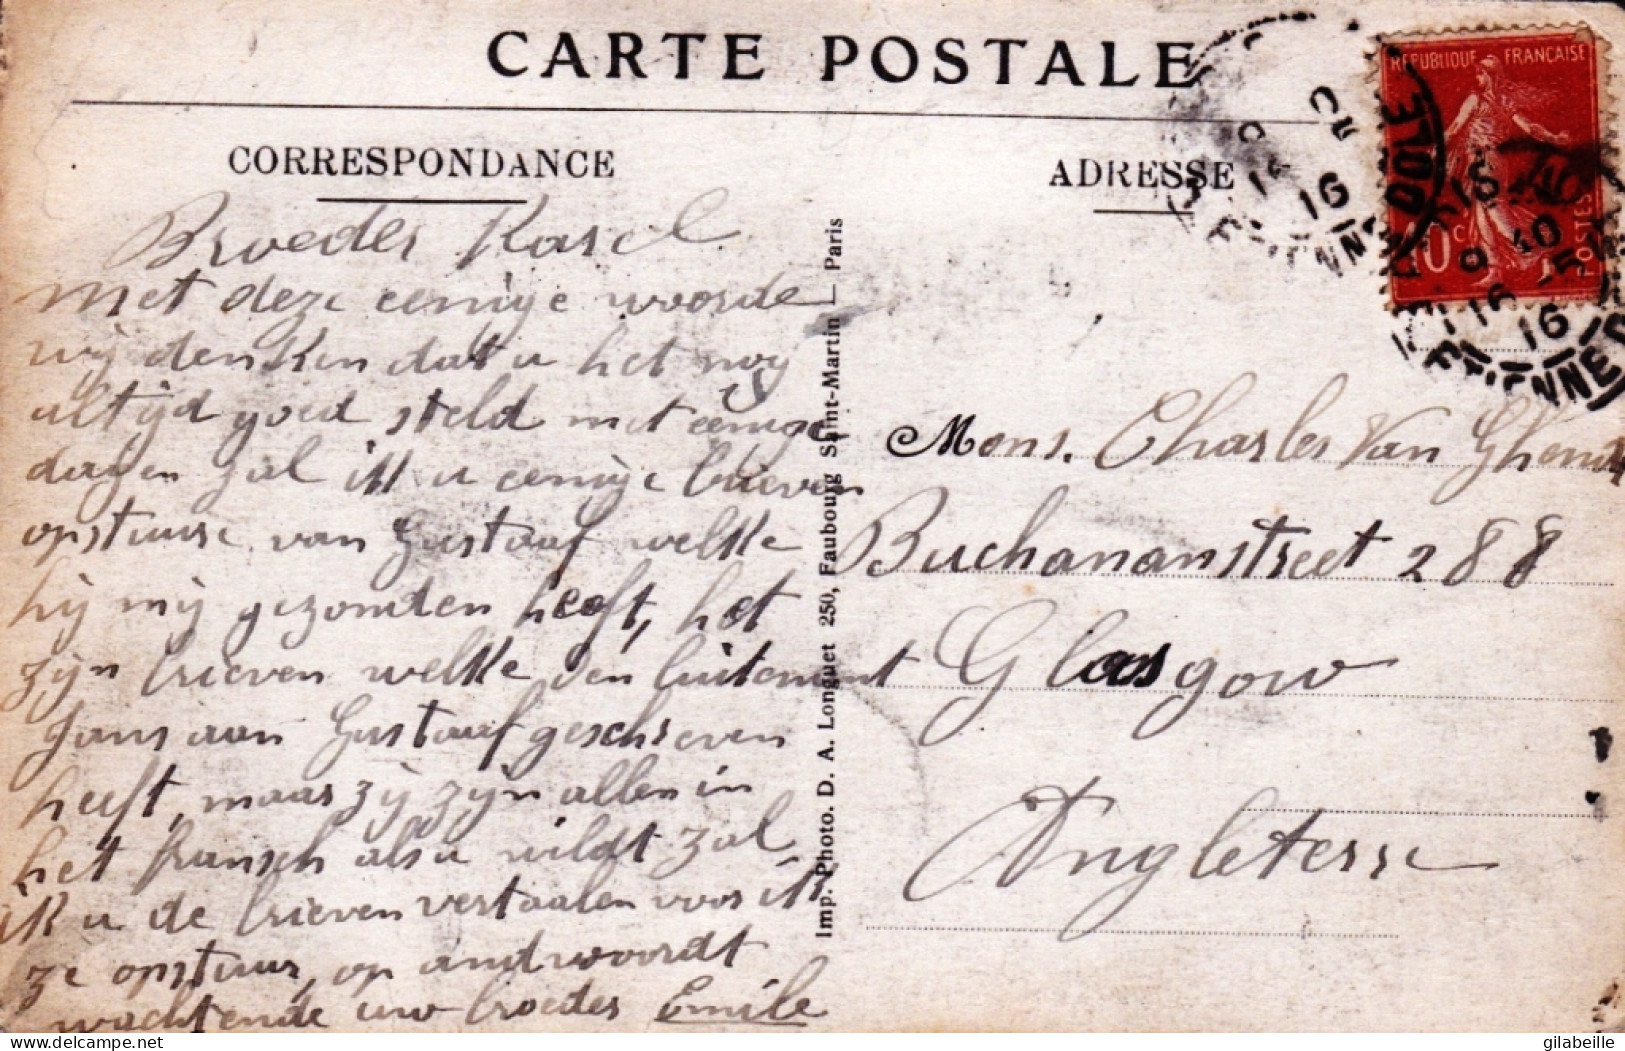 CARTE POSTALE
CORRESPONDANCE
Broeder Karel
met deze eenige woorde
wij denken dat u het nog
altijd goed steld met eenige
dagen zal ik u eenige brieven
opstuure van Gustaaf welke
hij mij gezonden heeft, het
zijn brieven welke den luitenant
Jans aan Gustaaf geschreven
heeft, maar zij zijn allen in
het fransch als u wildt zal
ik u de brieven vertaalen voor ik
ze opstuur, op andwoordt
wachtende uw broeder Emile
Imp. Photo. D. A. Longuet 250, Faubourg Saint-Martin — Paris
ADRESSE
Mons. Charles Van Ghendt
Buchananstreet 288
Glasgow
Angleterre
REPUBLIQUE FRANÇAISE
10c POSTES
DOLE
16
10
16
gilabeille
delcampe.net